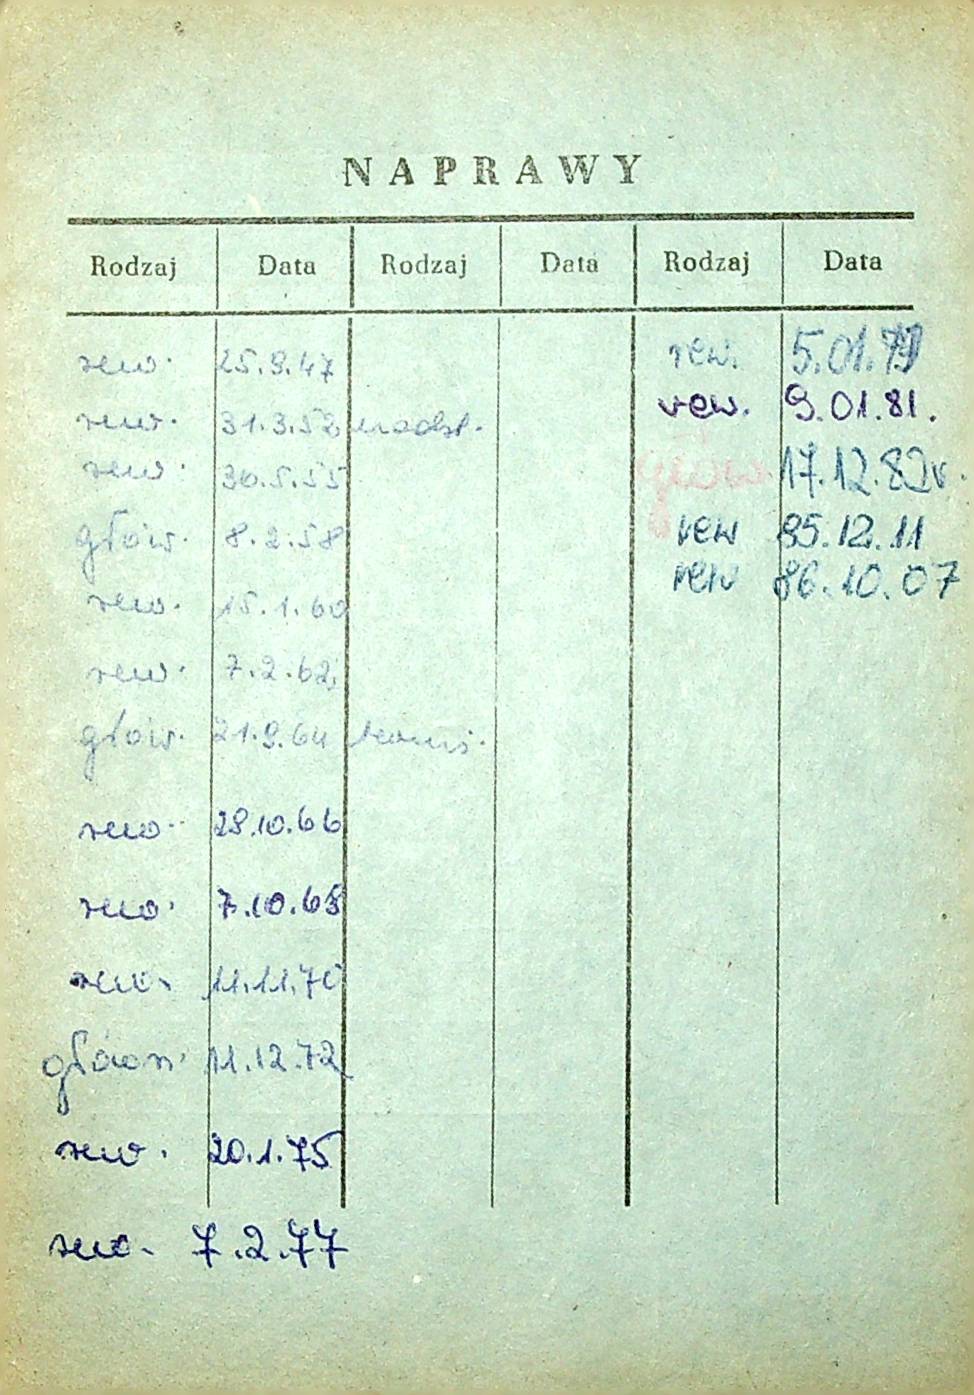 NAPRAWY
Rodzaj Data Rodzaj Data Rodzaj Data
rew. 25.9.47
rew. 31.3.52
rew. 30.5.55
głów. 8.2.58
rew. 15.1.60
rew. 7.2.62
głów. 21.9.64
rew. 28.10.66
rew. 7.10.68
rew. 11.11.70
główn. 11.12.72
rew. 20.1.75
rew. 7.2.77
rew. 5.01.79
rew. 9.01.81.
głów. 17.12.82r.
rew 85.12.11
rew 86.10.07